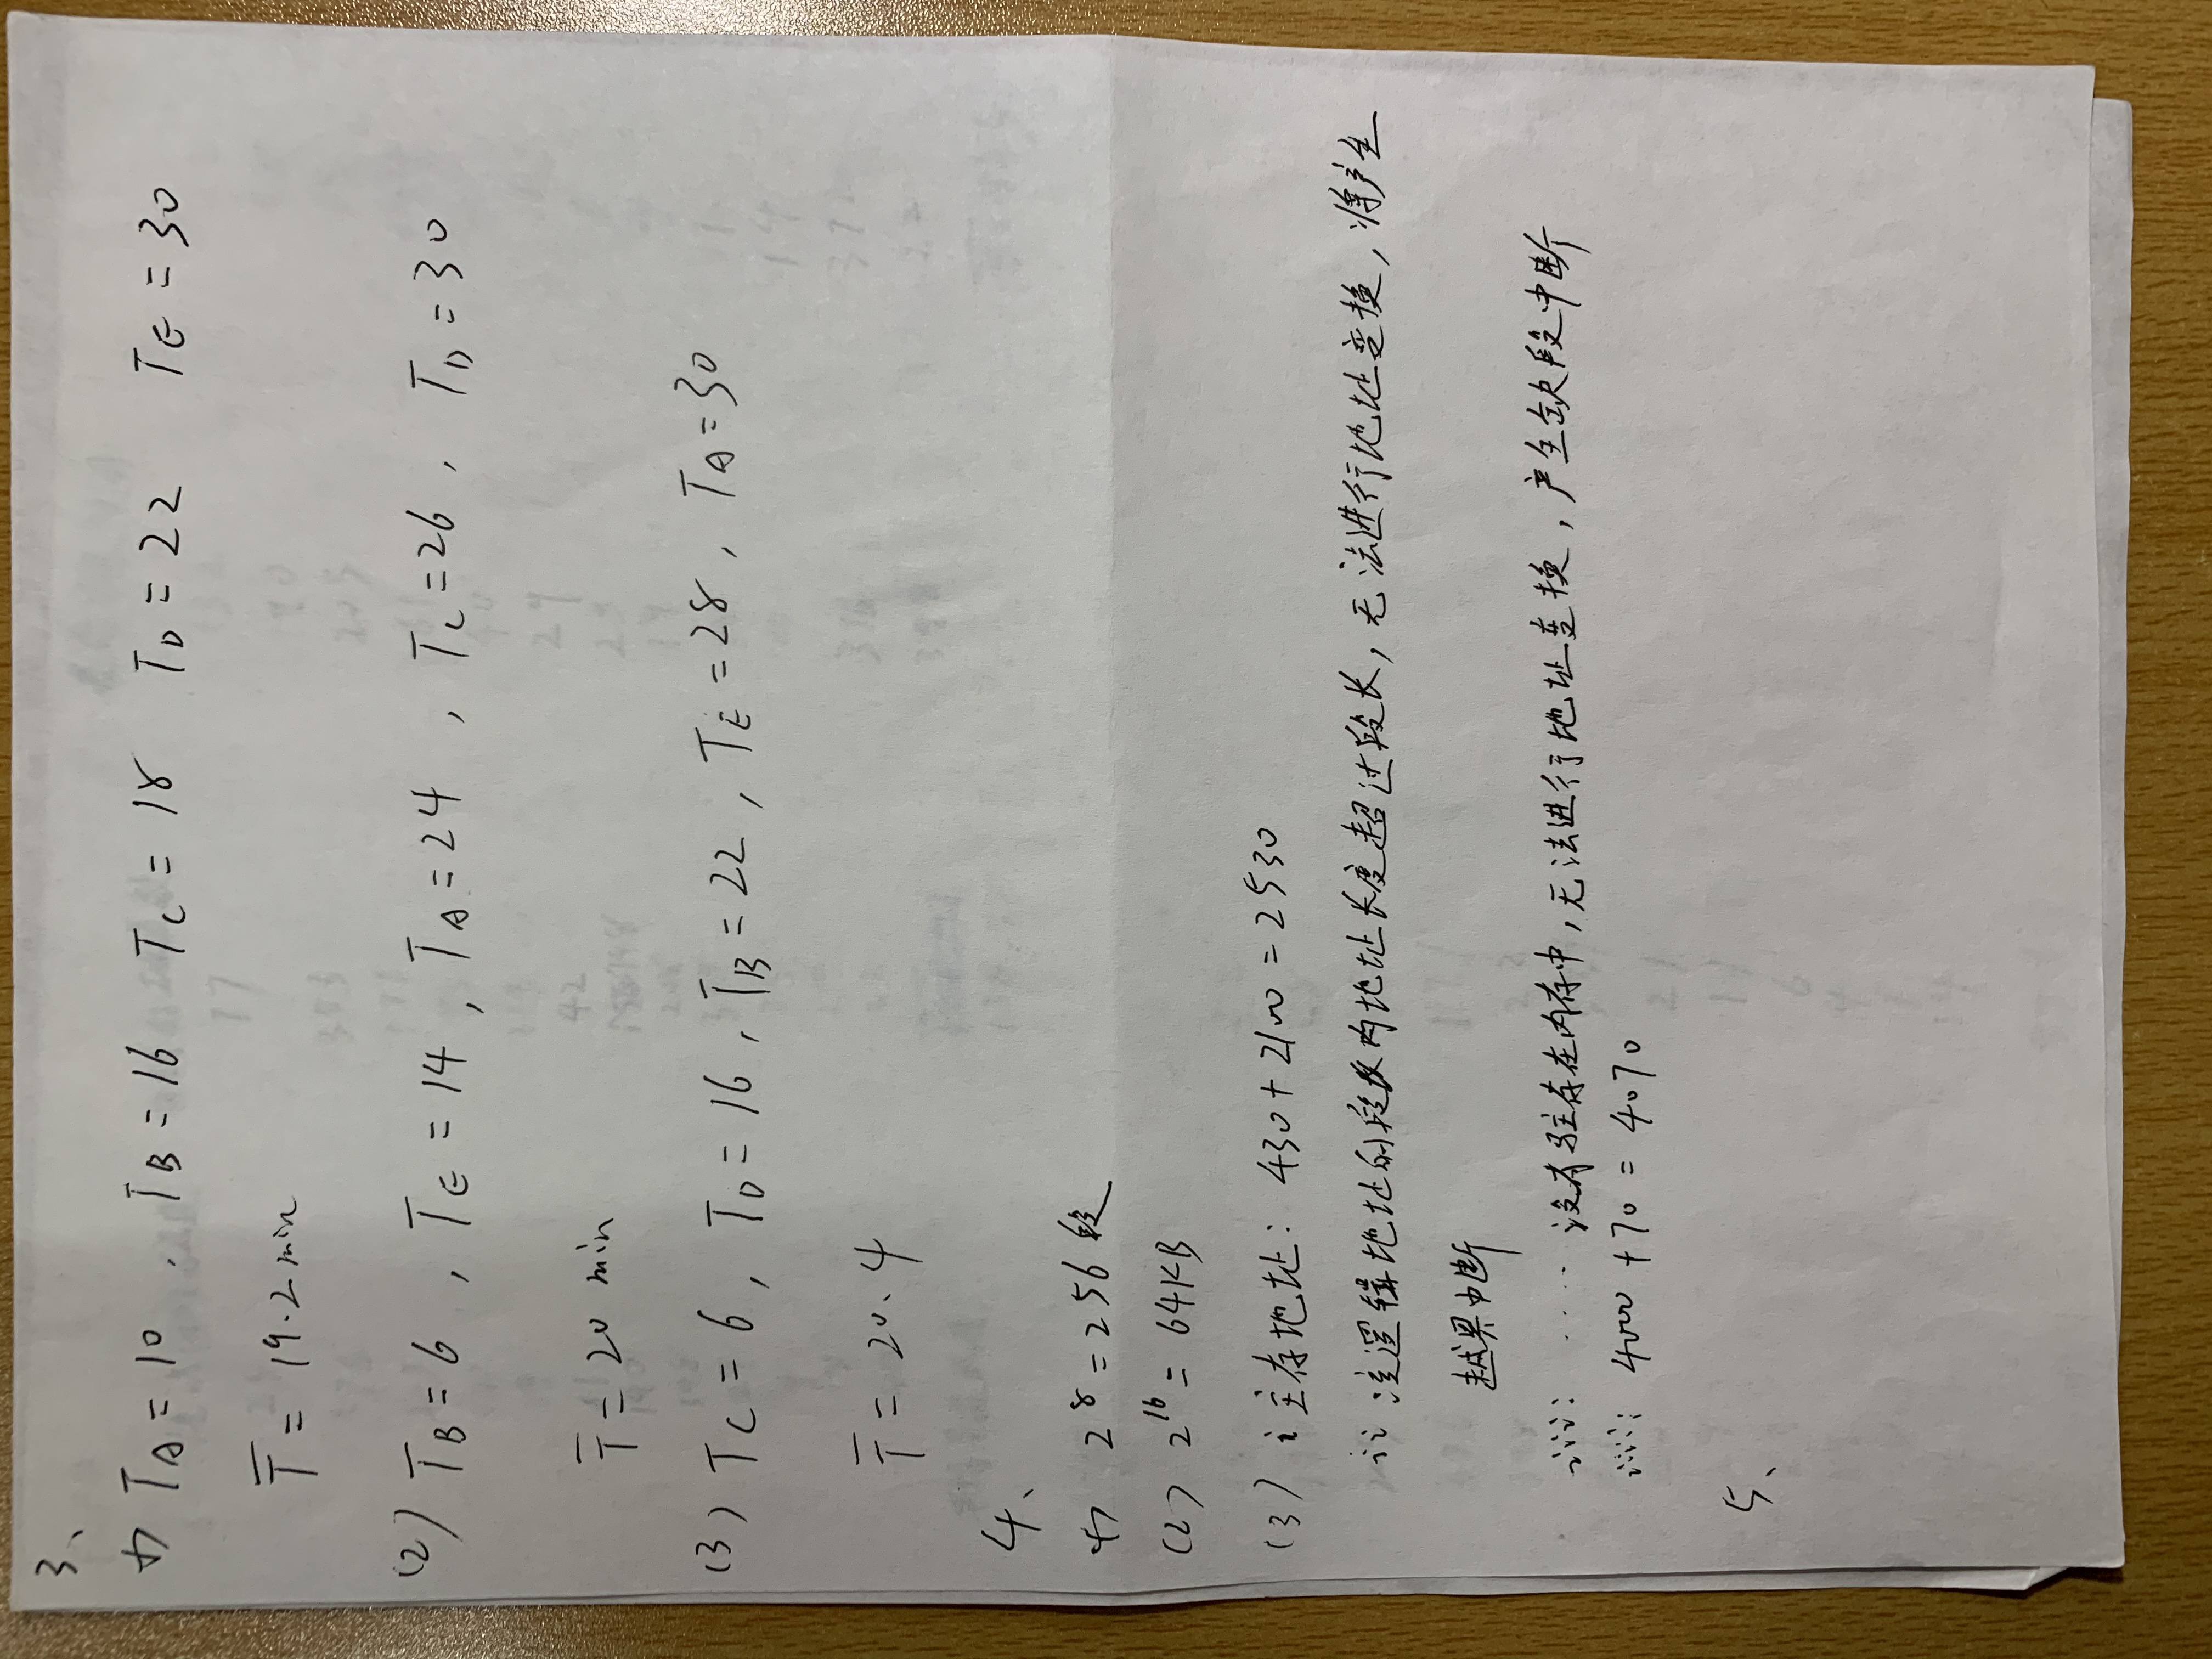 3、
(1) T_A = 10 , T_B = 16 T_C = 18 T_D = 22 T_E = 30
T̅ = 19.2 min
(2) T_B = 6 , T_E = 14 , T_A = 24 , T_C = 26 , T_D = 30
T̅ = 20 min
(3) T_C = 6 , T_D = 16 , T_B = 22 , T_E = 28 , T_A = 30
T̅ = 20.4
4、
(1) 2^8 = 256 段
(2) 2^16 = 64KB
(3) i 主存地址: 430 + 2100 = 2530
ii 该逻辑地址的段内地址长度超过段长, 无法进行地址变换, 将产生
越界中断
iii: ····· 没有驻存在内存中, 无法进行地址变换, 产生缺段中断
iiii: 4000 + 70 = 4070
5、